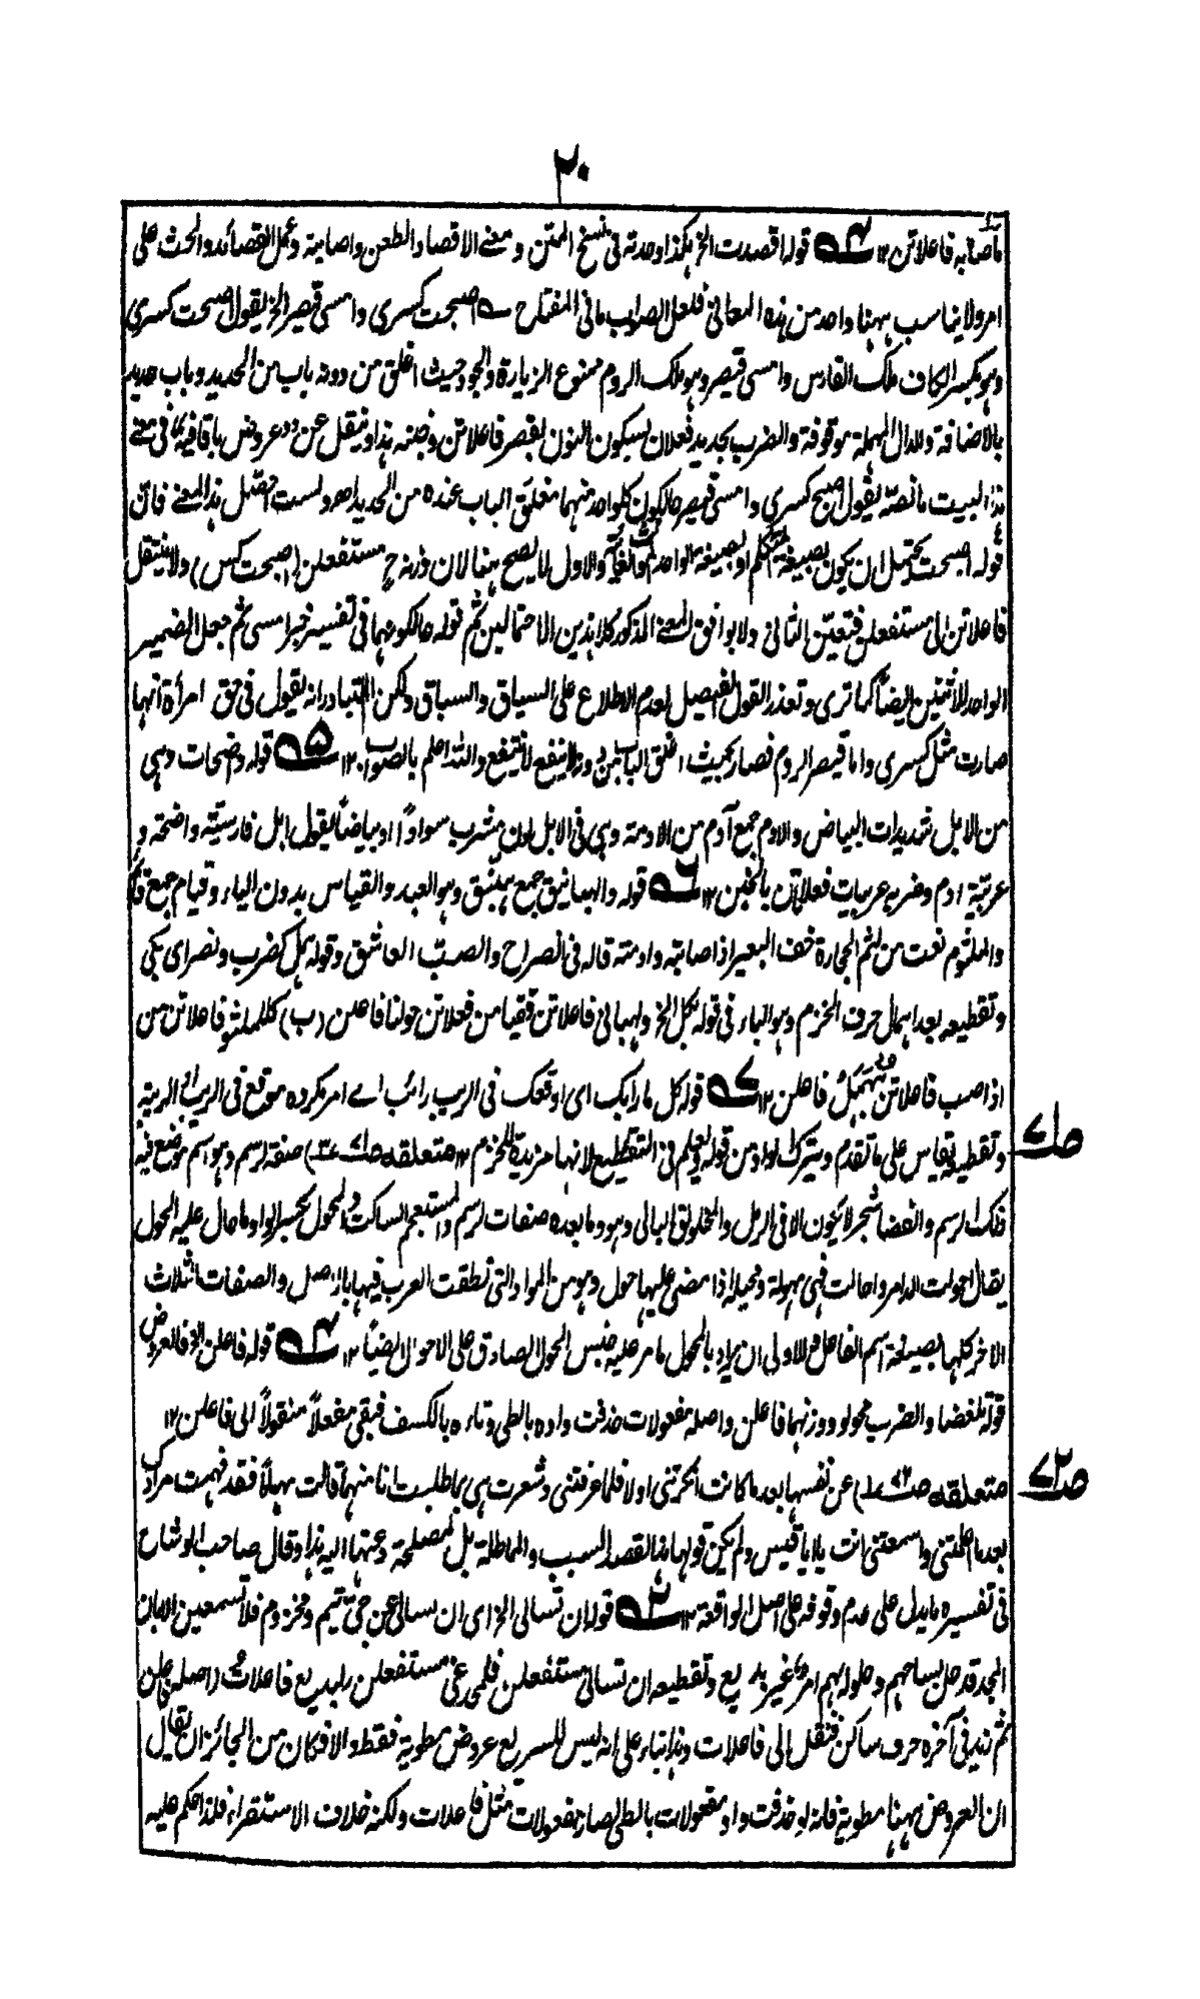 ٢٠
ماصابه فاعلاتن ١٢ قوله اقصدت الخ هكذا وجدته فى نسخ المتن و معنے الاقصاد الطعن واصابته وعمل القصائد والحث على
امر ولا يناسب ههنا واحد من هذه المعانى فلعل الصواب ما فى المفتاح اصبحت كسرى وامسى قيصر الخ يقول اصبحت كسرى
وهو بكسر الكاف ملك الفارس وامسى قيصر وهو ملك الروم ممنوع الزيارة والجود حيث اغلق من دونه باب من الحديد وباب حديد
بالاضافة والدال المهملة موقوفة والضرب بحديد فعلان بسكون النون بقصر فاعلاتن وخبنه هذا وينقل عن فى معنے
هذا البيت ما نصّه يقول اصبح كسرى وامسى قيصر حالكون كلواحد منهما مغلق الباب عنده من الحديد اھ ولست احصّل هذا المعنے فان
قوله اصبحت يحتمل ان يكون بصيغة المتكلم او بصيغة الواحد والاول لا يصح ههنا لان وزنه ح مستفعلن (اصبحت كس) ولا ينتقل
فاعلاتن الى مستفعلن فتعيّن الثانى ولا يوافق المعنے المذكور كلا هذين الاحتمالين ثم قوله حالكونهما فى تفسير خبر امسى ثم جعل الضمير
الواحد للاثنين ايضًا كما ترى وتعذر القول الفيصل لعدم الاطلاع على السياق والسباق ولكن المتبادر انه يقول فى حق امرأة انها
صارت مثل كسرى واما قيصر الروم فصار بحيث اغلق الباب لا ينفع لا ينتفع والله اعلم بالصواب ١٢ ٥ قوله واضحات وهى
من الابل شديدات البياض والادم جمع آدم من الادمة وهى فى الابل لون مشرب سوادًا او بياضًا يقول ابل فارسيّة واضحة و
عربيّة ادم وضربه عربيات فعلاتن بالخبن ١٢ ٦ قوله والهبانيق جمع هبنيق وهو العبد والقياس بدون الياء وقيام جمع قائم
والملثوم نعت من لثم الحجارة خف البعير اذا اصابته وادمته قاله فى الصراح والصبّ العاشق وقوله هل كضرب ونصر اى بكى
وتقطيعه بعد اهمال حرف الخزم وهو الباء فى قوله بكل الخ والهبانى فاعلاتن ققيامن فعلاتن حولنا فاعلن (ب) كللملثو فاعلاتن من
اذا صب فاعلاتن فاعلن ١٢ ٧ قوله كل مارابك اى اوقعك فى الريب رائب اے امر مكروه موقع فى الريب اى الريبة
وتقطيعه يقاس على ما تقدم ويترك الواو من قوله ويعلم فى التقطيع لانها مزيدة للخزم ١٢ متعلقه ) صفة الرسم وهو اسم موضع فيه
ذلك الرسم والغضا شجر لا يكون الا فى الرمل والمخلولق البالى وهو وما بعده صفات لرسم والمستعجم الساكت والمحول بكسر الواو ما حال عليه الحول
يقال احولت الدار واحالت فهى محولة ومحيلة اذا مضى عليها حول وهو من المواد التى نطقت العرب فيها بالاصل والصفات الثلاث
الاخر كلها بصيغة اسم الفاعل والاولى ان يراد بالمحول ما مر عليه جنس الحول الصادق على الاحوال ايضًا ١٢ ٣ قوله فاعلن الخ فالعروض
قوله تلغضا والضرب محولو ووزنهما فاعلن واصله مفعولات حذفت واوه بالطى وتاءه بالكسف فبقى مفعلًا منقولًا الى فاعلن ١٢
متعلقه ) عن نفسها بعد ما كانت انكرتنى اولا فلما عرفتنى وشعرت هى بما طلبت انا منها قالت مهلًا فقد فهمت مرادك
بعد ما اعلمتنى واسمعتنى انت يا ابا قيس ولم يكن قولها هذا لقصد السبب والمماطلة بل لمصلحة دعتها اليه هذا وقال صاحب الوشاح
فى تفسيره ما يدل على عدم وقوفه على اصل الواقعة ١٢ ٢ قوله ان تسالى الخ اى ان تسالى عن حىّ تيم ومخزوم فلا تسمعين الا بان
المجد قد حل بساحهم وحلوله بهم امر غير بديع وتقطيعه ان تسالى مستفعلن فلمجدغى مستفعلن ربلبديع فاعلات (اصله فاعلن
ثم زيد فى آخره حرف ساكن فنقل الى فاعلات وهذا بناء على انه ليس للسريع عروض مطوية فقط والا فكان من الجائز ان يقال
ان العروض ههنا مطوية فانه لو حذفت واو مفعولات بالطى لصار مفعولات مثل فاعلات ولكنه خلاف الاستقراء فلذا حكم عليه